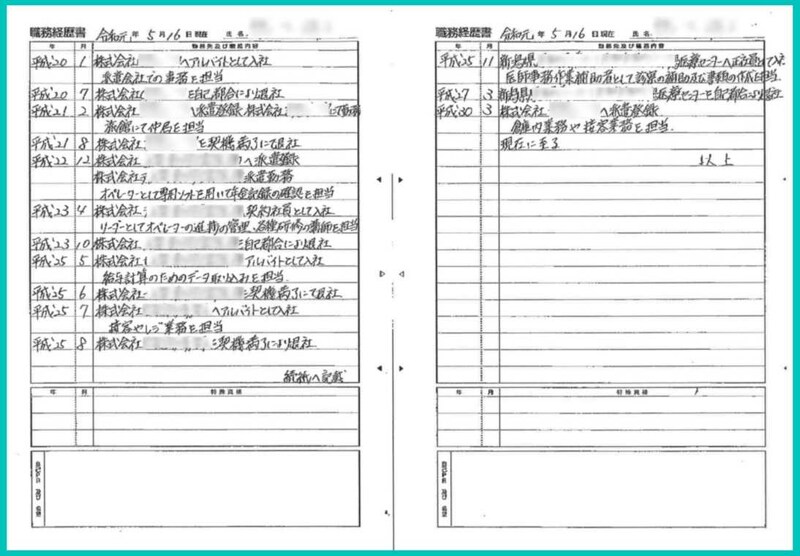 職務経歴書 令和元年5月16日現在 氏名
年 月 勤務先及び職務内容
平成20 1 株式会社 へアルバイトとして入社
派遣会社での事務を担当
平成20 7 株式会社 を自己都合により退社
平成21 2 株式会社 へ派遣登録、株式会社 にて勤務
旅館にて仲居を担当
平成21 8 株式会社 を契機満了にて退社
平成22 12 株式会社 へ派遣登録
株式会社 派遣勤務
オペレーターとして専用ソフトを用いて年金記録の確認を担当
平成23 4 株式会社 契約社員として入社
リーダーとしてオペレーターの進捗の管理、各種研修の講師を担当
平成23 10 株式会社 自己都合により退社
平成25 5 株式会社 アルバイトとして入社
給与計算のためのデータ取り込みを担当
平成25 6 株式会社 契機満了にて退社
平成25 7 株式会社 へアルバイトとして入社
接客やレジ業務を担当
平成25 8 株式会社 契機満了により退社
続紙へ記載
年 月 特殊資格
職務経歴書 令和元年5月16日現在 氏名
年 月 勤務先及び職務内容
平成25 11 新潟県 医療センターへ正社員として入
医師事務作業補助者として診察の補助及び書類の作成を担当
平成27 3 新潟県 医療センターを自己都合により退社
平成30 3 株式会社 へ派遣登録
倉庫内業務や接客業務を担当
現在に至る
以上
年 月 特殊資格